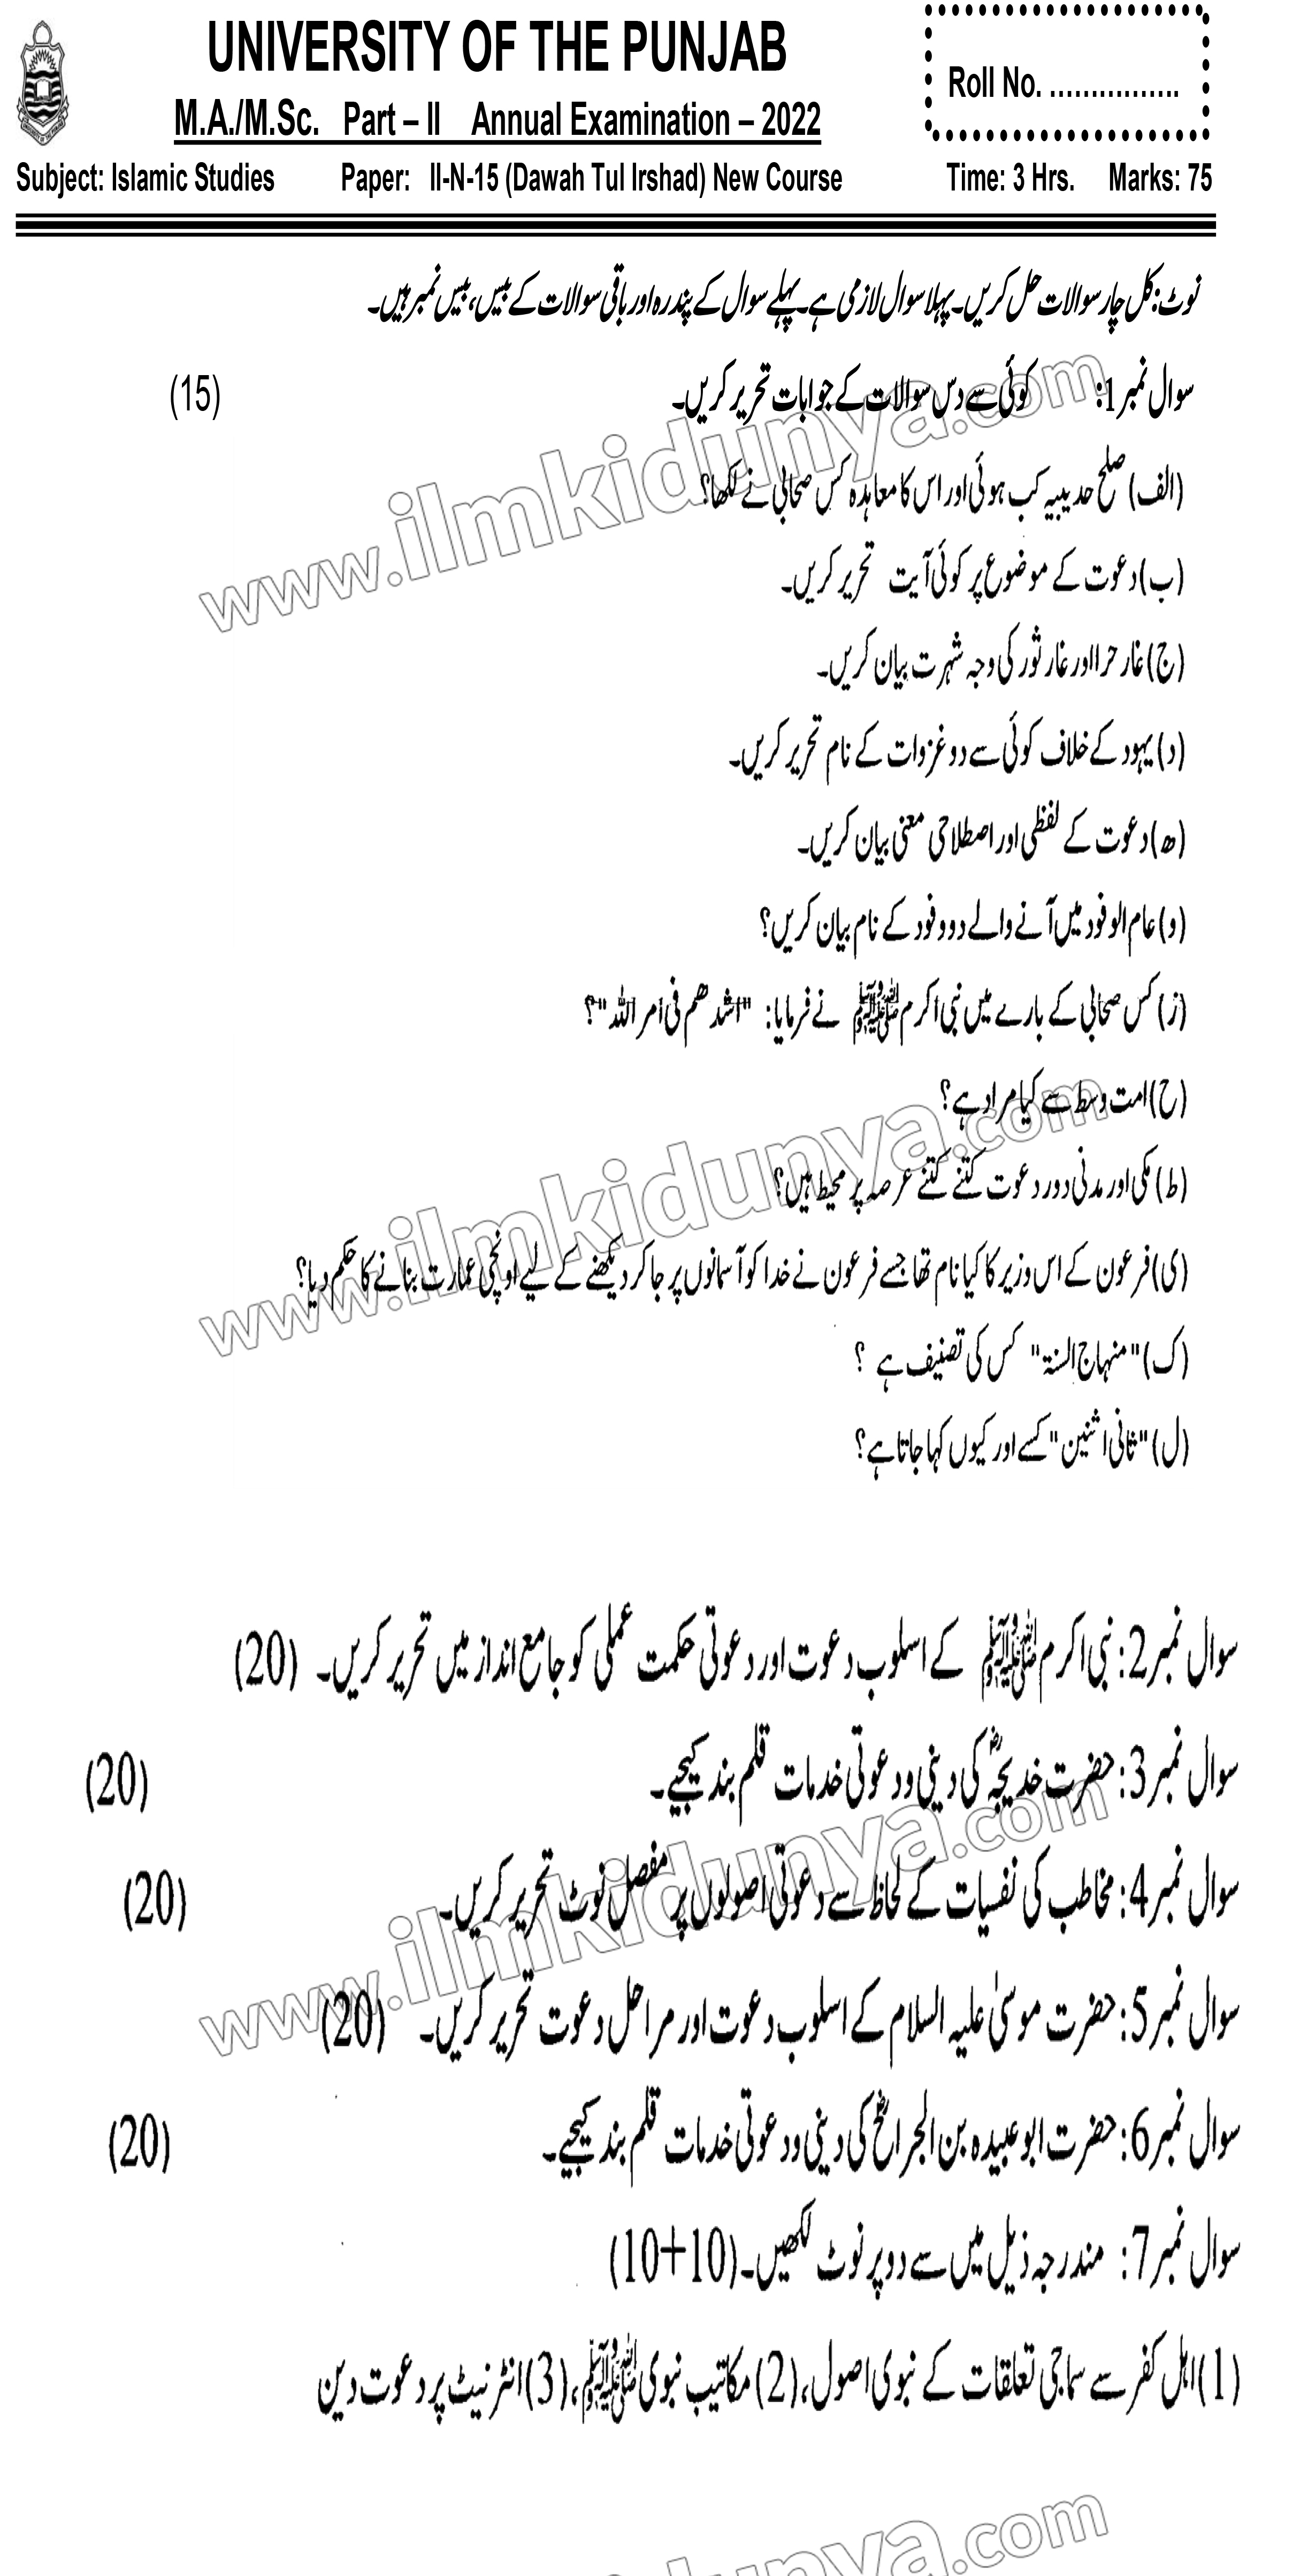 UNIVERSITY OF THE PUNJAB
Roll No. ................
M.A./M.Sc. Part – II Annual Examination – 2022
Subject: Islamic Studies Paper: II-N-15 (Dawah Tul Irshad) New Course Time: 3 Hrs. Marks: 75
نوٹ: کل چار سوالات حل کریں۔ پہلا سوال لازمی ہے۔ پہلے سوال کے پندرہ اور باقی سوالات کے بیس، بیس نمبر ہیں۔
سوال نمبر 1: کوئی سے دس سوالات کے جوابات تحریر کریں۔ (15)
www.ilmkidunya.com
(الف) صلح حدیبیہ کب ہوئی اور اس کا معاہدہ کس صحابی نے لکھا؟
(ب) دعوت کے موضوع پر کوئی آیت تحریر کریں۔
(ج) غار حرا اور غار ثور کی وجہ شہرت بیان کریں۔
(د) یہود کے خلاف کوئی سے دو غزوات کے نام تحریر کریں۔
(ھ) دعوت کے لفظی اور اصطلاحی معنی بیان کریں۔
(و) عام الوفود میں آنے والے دو وفود کے نام بیان کریں؟
(ز) کس صحابی کے بارے میں نبی اکرم ﷺ نے فرمایا: "اشدھم فی امر اللہ"؟
(ح) امت وسط سے کیا مراد ہے؟
www.ilmkidunya.com
(ط) مکی اور مدنی دور دعوت کتنے کتنے عرصہ پر محیط ہیں؟
(ی) فرعون کے اس وزیر کا کیا نام تھا جسے فرعون نے خدا کو آسمانوں پر جا کر دیکھنے کے لیے اونچی عمارت بنانے کا حکم دیا؟
(ک) "منہاج السنۃ" کس کی تصنیف ہے ؟
(ل) "ثانی اثنین" کسے اور کیوں کہا جاتا ہے؟
سوال نمبر 2: نبی اکرم ﷺ کے اسلوب دعوت اور دعوتی حکمت عملی کو جامع انداز میں تحریر کریں۔ (20)
سوال نمبر 3: حضرت خدیجہؓ کی دینی و دعوتی خدمات قلم بند کیجیے۔ (20)
سوال نمبر 4: مخاطب کی نفسیات کے لحاظ سے دعوتی اصولوں پر مفصل نوٹ تحریر کریں۔ (20)
www.ilmkidunya.com
سوال نمبر 5: حضرت موسیٰ علیہ السلام کے اسلوب دعوت اور مراحل دعوت تحریر کریں۔ (20)
سوال نمبر 6: حضرت ابو عبیدہ بن الجراحؓ کی دینی و دعوتی خدمات قلم بند کیجیے۔ (20)
سوال نمبر 7: مندرجہ ذیل میں سے دو پر نوٹ لکھیں۔ (10+10)
(1) اہل کفر سے سماجی تعلقات کے نبوی اصول، (2) مکاتیب نبوی ﷺ، (3) انٹرنیٹ پر دعوت دین